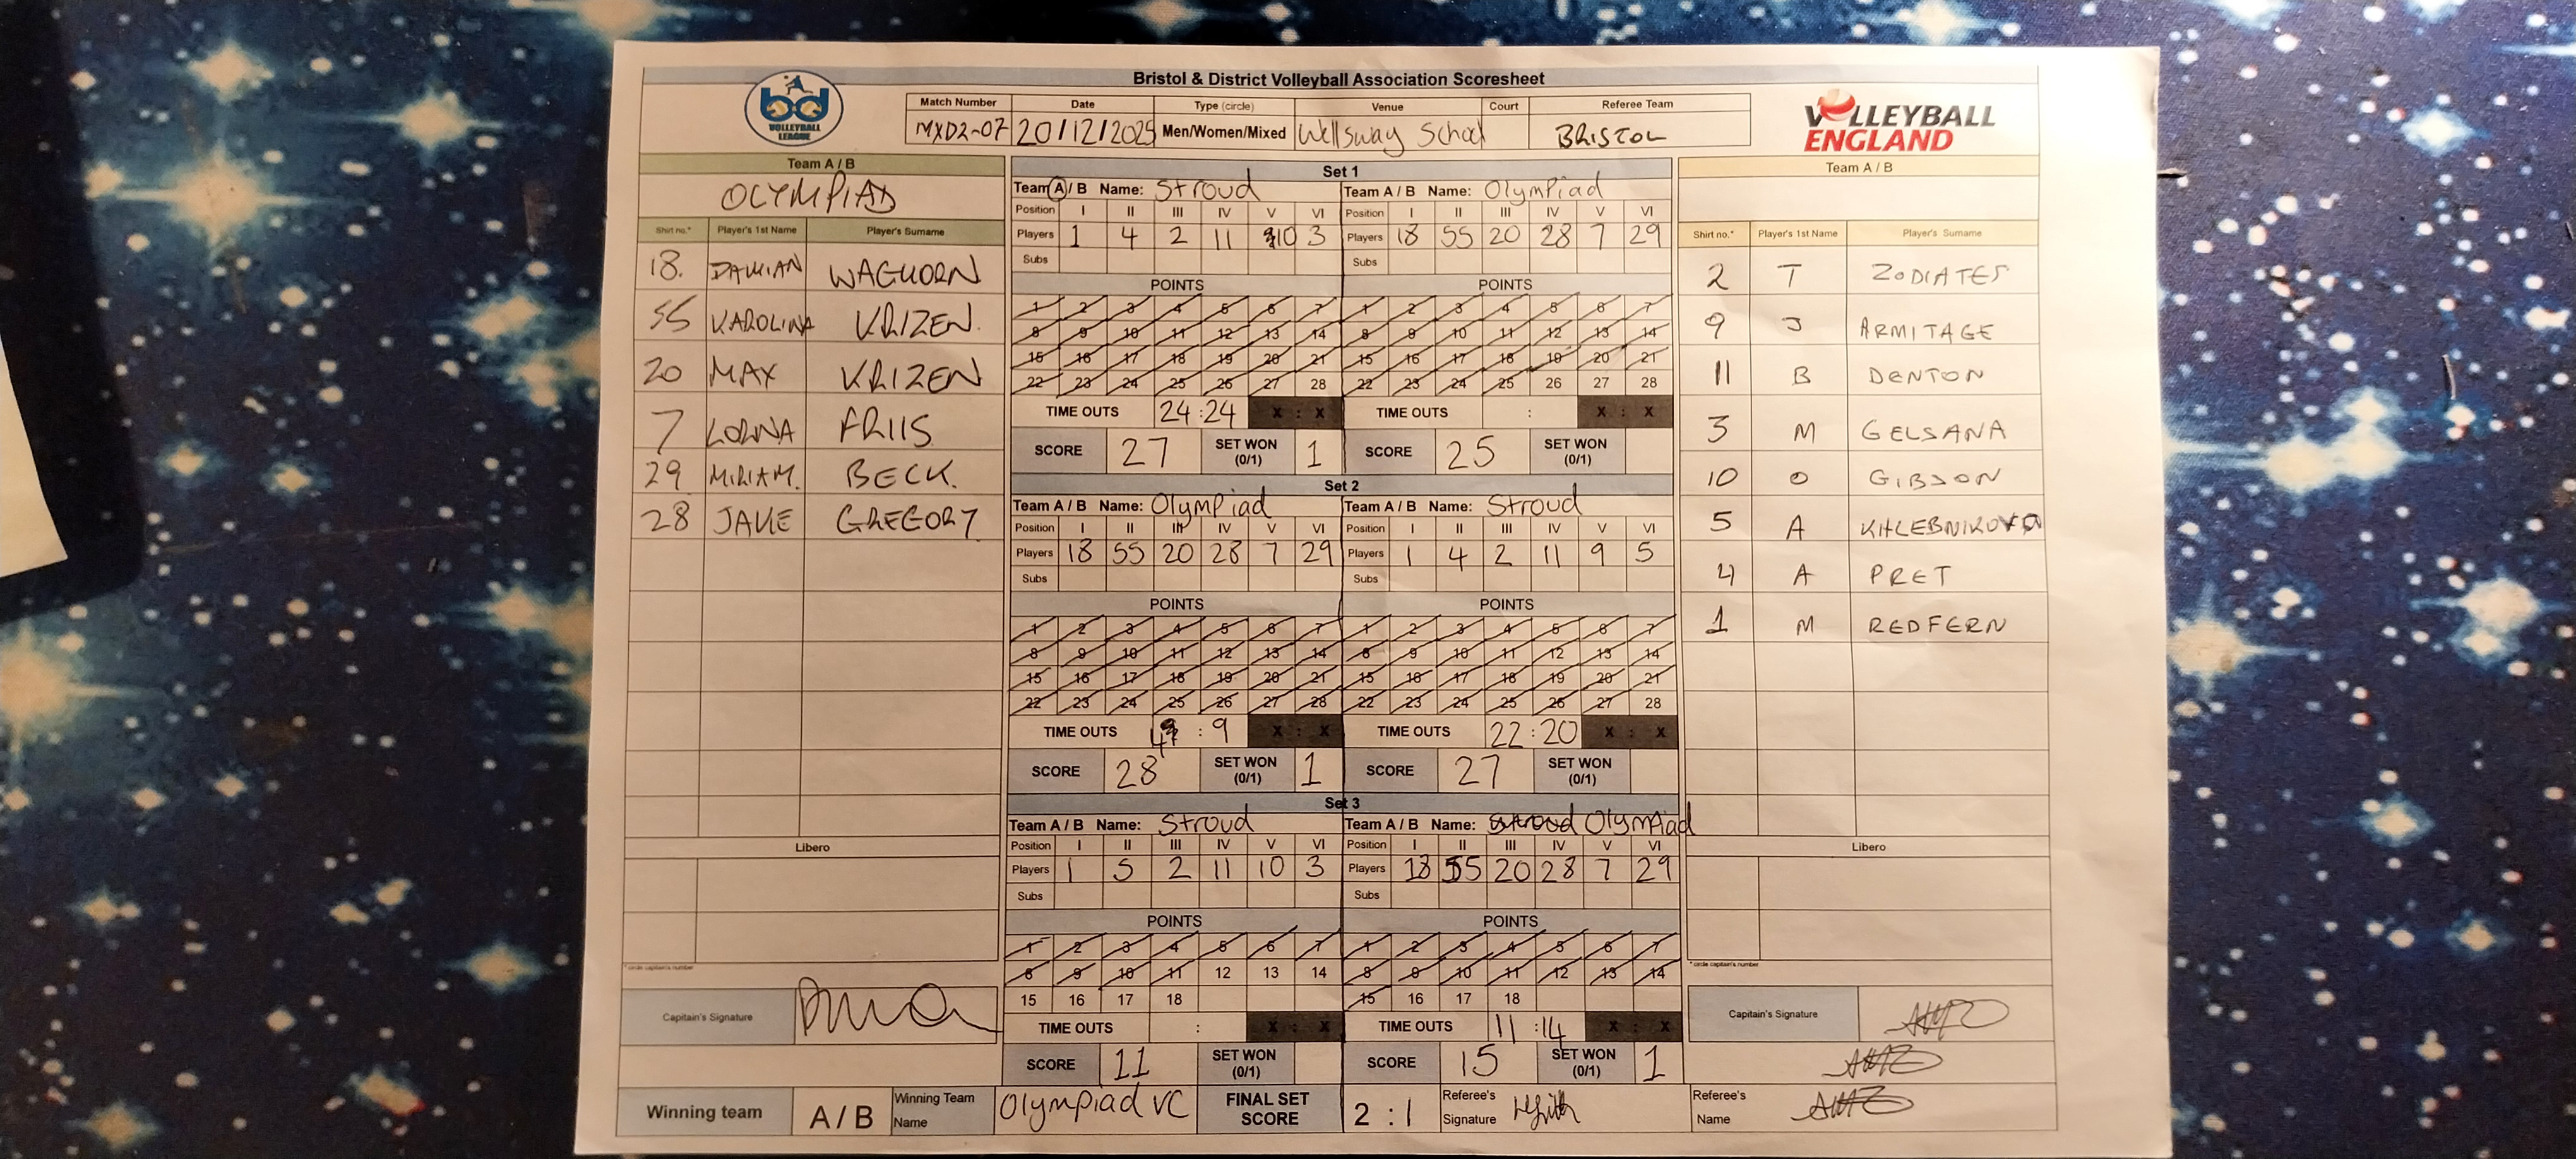 Bristol & District Volleyball Association Scoresheet
bd VOLLEYBALL LEAGUE
Match Number Date Type (circle) Venue Court Referee Team
MXD2-07 20/12/2025 Men/Women/Mixed Wellsway School BRISTOL
VOLLEYBALL ENGLAND
Team A / B
OLYMPIAD
Shirt no.* Player's 1st Name Player's Surname
18. DAMIAN WAGHORN
55 KAROLINA KRIZEN.
20 MAX KRIZEN
7 LORNA FRIIS
29 MIRIAM. BECK.
28 JAKE GREGORY
Libero
* circle captain's number
Capitain's Signature
Set 1
Team A / B Name: Stroud
Position I II III IV V VI
Players 1 4 2 11 10 3
Subs
POINTS
1 2 3 4 5 6 7
8 9 10 11 12 13 14
15 16 17 18 19 20 21
22 23 24 25 26 27 28
TIME OUTS 24 : 24 X : X
SCORE 27 SET WON (0/1) 1
Team A / B Name: Olympiad
Position I II III IV V VI
Players 18 55 20 28 7 29
Subs
POINTS
1 2 3 4 5 6 7
8 9 10 11 12 13 14
15 16 17 18 19 20 21
22 23 24 25 26 27 28
TIME OUTS : X : X
SCORE 25 SET WON (0/1)
Set 2
Team A / B Name: Olympiad
Position I II III IV V VI
Players 18 55 20 28 7 29
Subs
POINTS
1 2 3 4 5 6 7
8 9 10 11 12 13 14
15 16 17 18 19 20 21
22 23 24 25 26 27 28
TIME OUTS : 9 X : X
SCORE 28 SET WON (0/1) 1
Team A / B Name: Stroud
Position I II III IV V VI
Players 1 4 2 11 9 5
Subs
POINTS
1 2 3 4 5 6 7
8 9 10 11 12 13 14
15 16 17 18 19 20 21
22 23 24 25 26 27 28
TIME OUTS 22 : 20 X : X
SCORE 27 SET WON (0/1)
Set 3
Team A / B Name: Stroud
Position I II III IV V VI
Players 1 5 2 11 10 3
Subs
POINTS
1 2 3 4 5 6 7
8 9 10 11 12 13 14
15 16 17 18
TIME OUTS : X : X
SCORE 11 SET WON (0/1)
Team A / B Name: Stroud Olympiad
Position I II III IV V VI
Players 18 55 20 28 7 29
Subs
POINTS
1 2 3 4 5 6 7
8 9 10 11 12 13 14
15 16 17 18
TIME OUTS 11 : 14 X : X
SCORE 15 SET WON (0/1) 1
Team A / B
Shirt no.* Player's 1st Name Player's Surname
2 T ZODIATES
9 J ARMITAGE
11 B DENTON
3 M GELSANA
10 O GIBSON
5 A KHLEBNIKOVA
4 A PRET
1 M REDFERN
Libero
* circle captain's number
Capitain's Signature
Winning team A / B Winning Team Name Olympiad VC FINAL SET SCORE 2 : 1 Referee's Signature Referee's Name